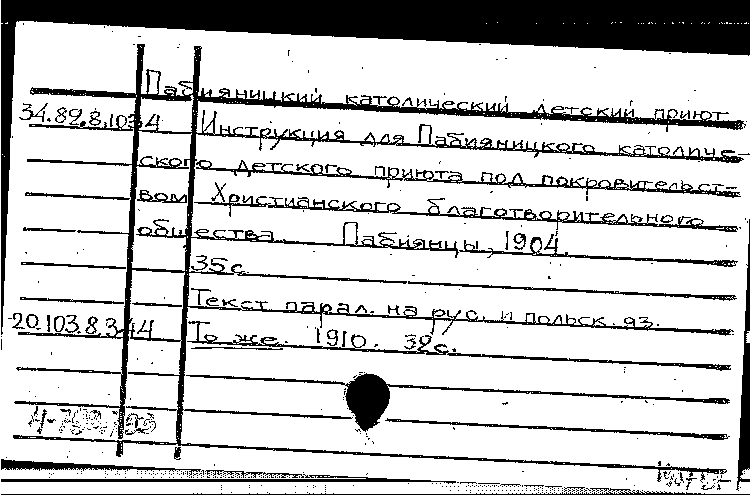 Пабияницкий католический детский приют
34.89.8.1034 Инструкция для Пабияницкого католиче-
ского детского приюта под покровительст-
вом Христианского благотворительного
общества. Пабиянцы, 1904.
35с
Текст парал. на рус. и польск. яз.
20.103.8.344 То же. 1910. 32с.